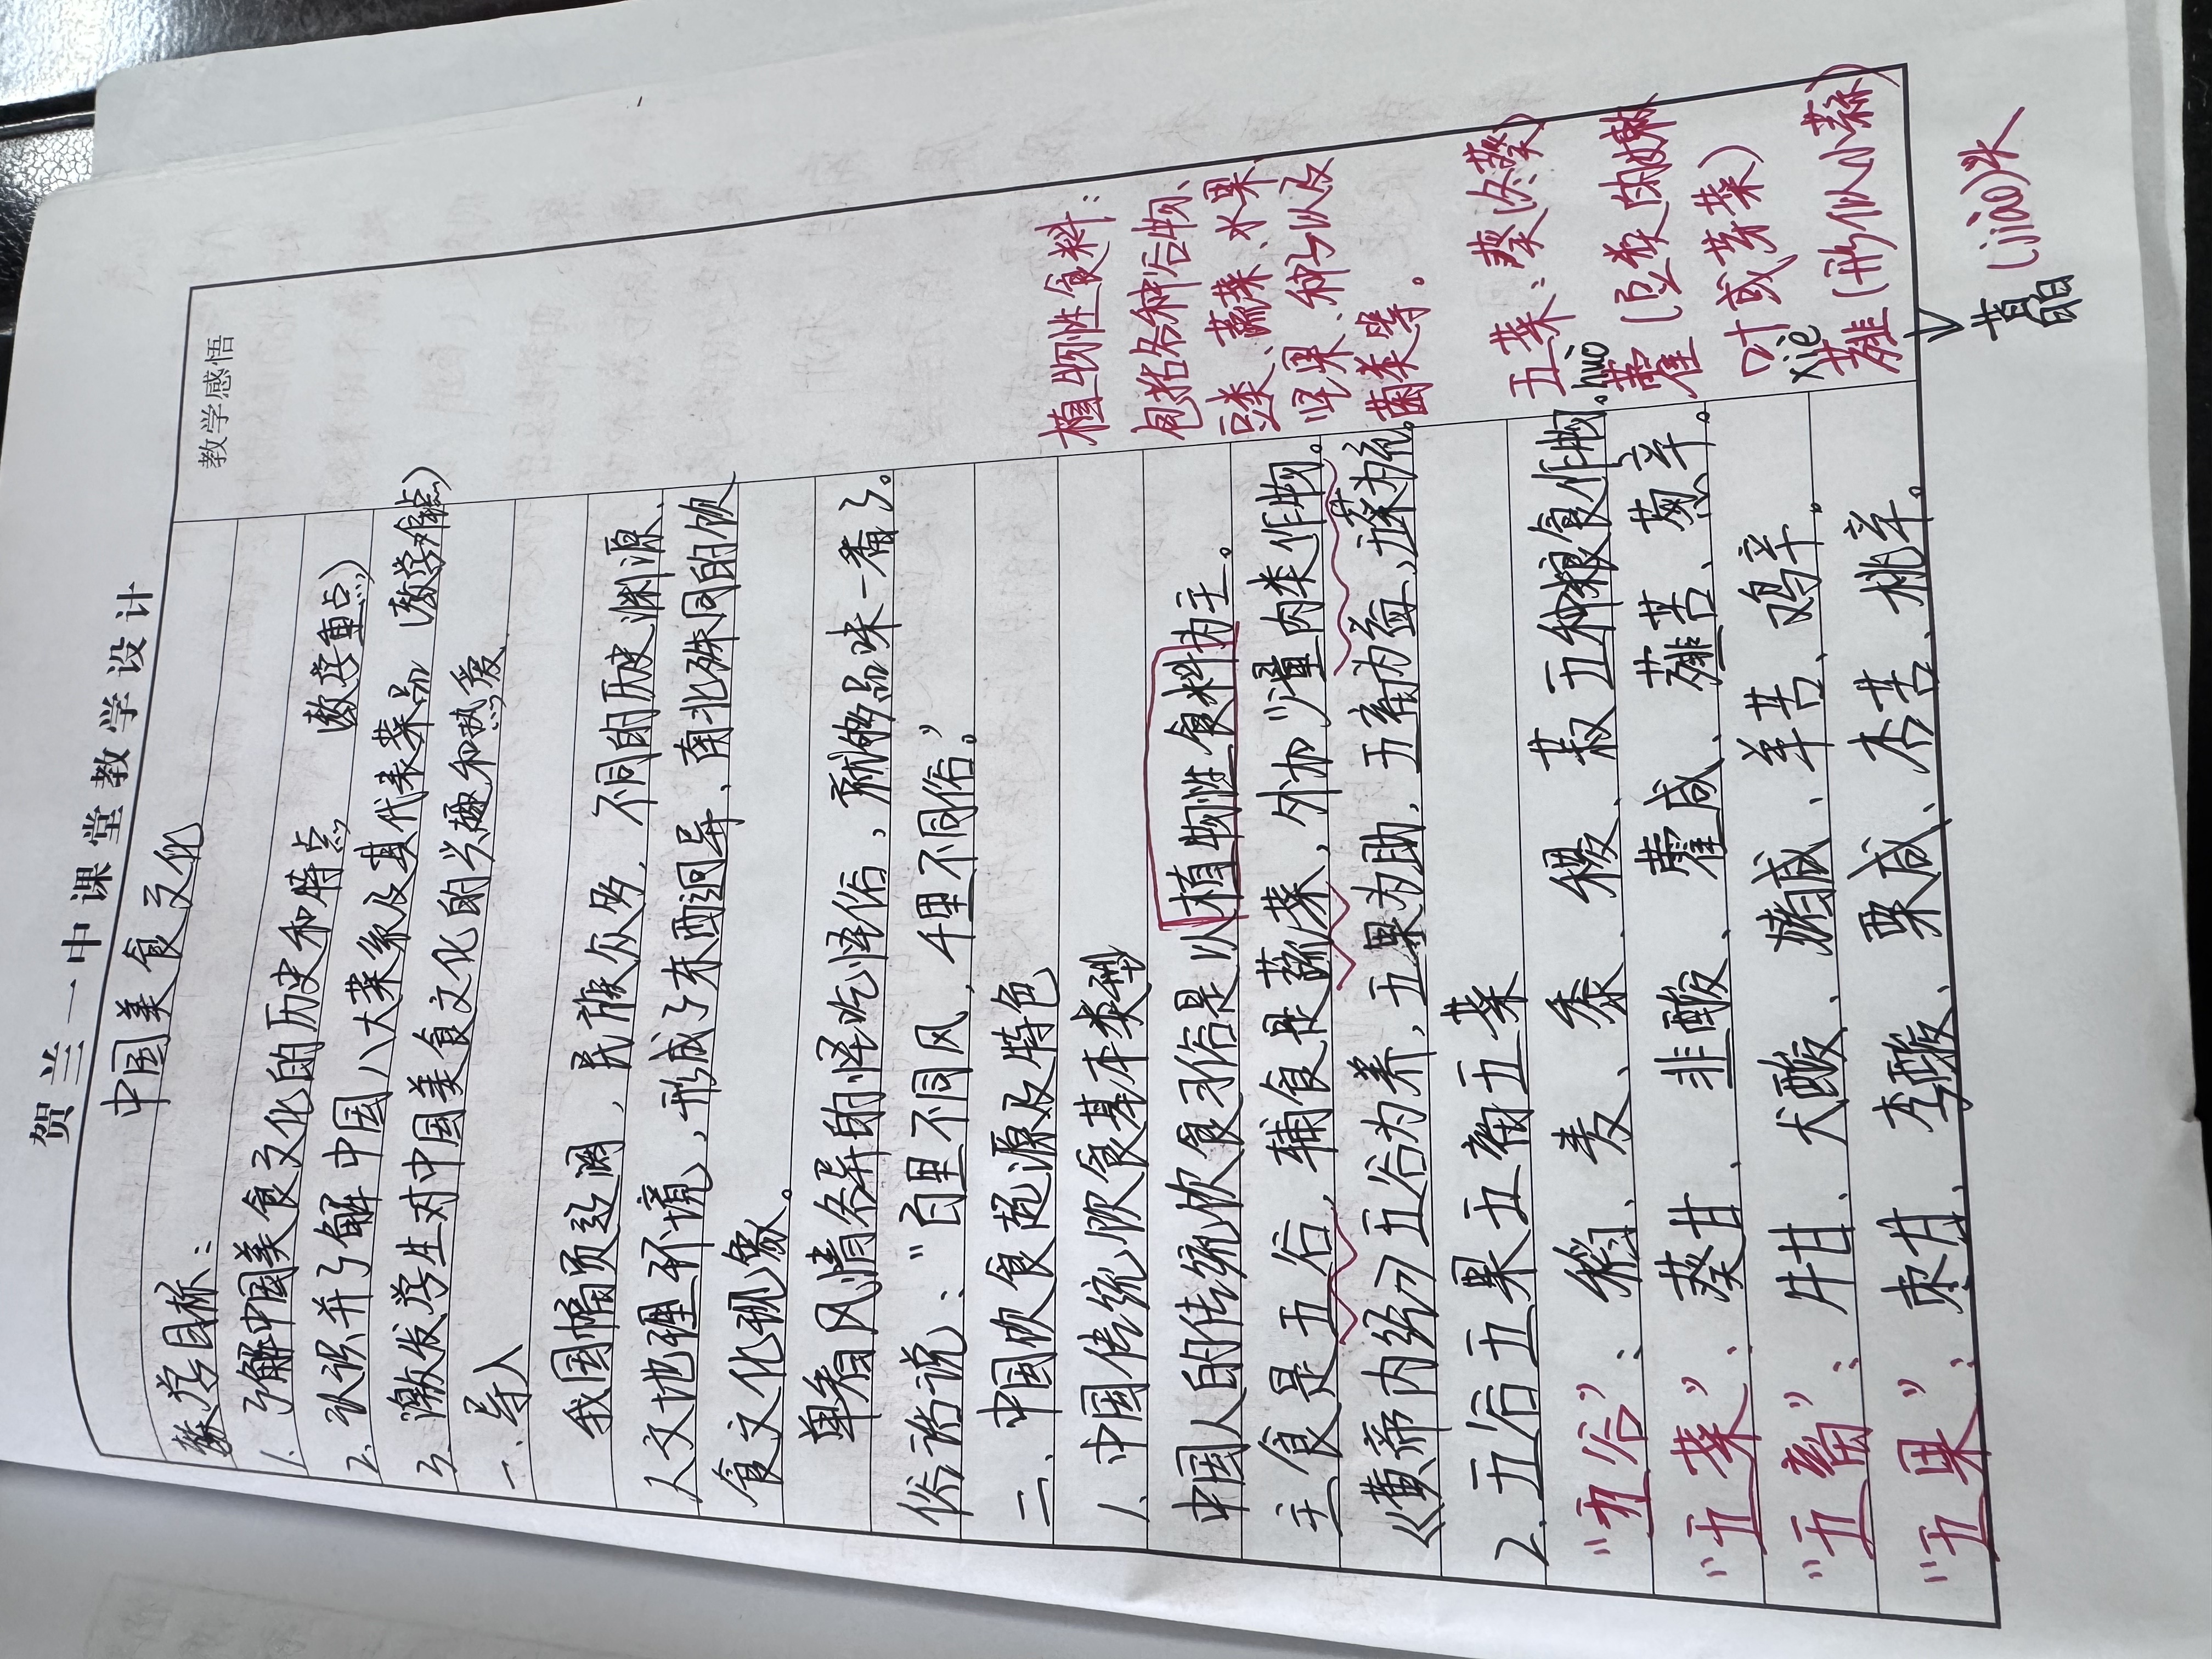 贺兰一中课堂教学设计
中国美食文化
教学感悟
教学目标：
1. 了解中国美食文化的历史和特点 （教学重点）
2. 认识并了解中国八大菜系及其代表菜品 （教学难点）
3. 激发学生对中国美食文化的兴趣和热爱
一、导入
我国幅员辽阔，民族众多，不同的历史渊源、
人文地理环境，形成了东西迥异、南北殊同的饮
食文化现象。
单看风情各异的怪吃怪俗，就够品味一番了。
俗话说：“百里不同风，千里不同俗”。
二、中国饮食起源及特色
1. 中国传统饮食基本类型
中国人的传统饮食习俗是以植物性食料为主。
主食是五谷，辅食是蔬菜，外加少量肉类作物。
《黄帝内经》五谷为养，五果为助，五畜为益，五菜为充。
2. 五谷五果五畜五菜
“五谷”：稻、麦、黍、稷、菽五种粮食作物。
“五菜”：葵甘、韭酸、藿咸、薤苦、葱辛。
“五畜”：牛甘、犬酸、猪咸、羊苦、鸡辛。
“五果”：枣甘、李酸、栗咸、杏苦、桃辛。
植物性食料：
包括各种谷物、
豆类、蔬菜、水果
坚果、种子以及
菌类等。
五菜：葵（冬葵）
huò
藿（豆类的嫩
叶或芽菜）
xiè
薤（形似小蒜）
藠（jiào）头